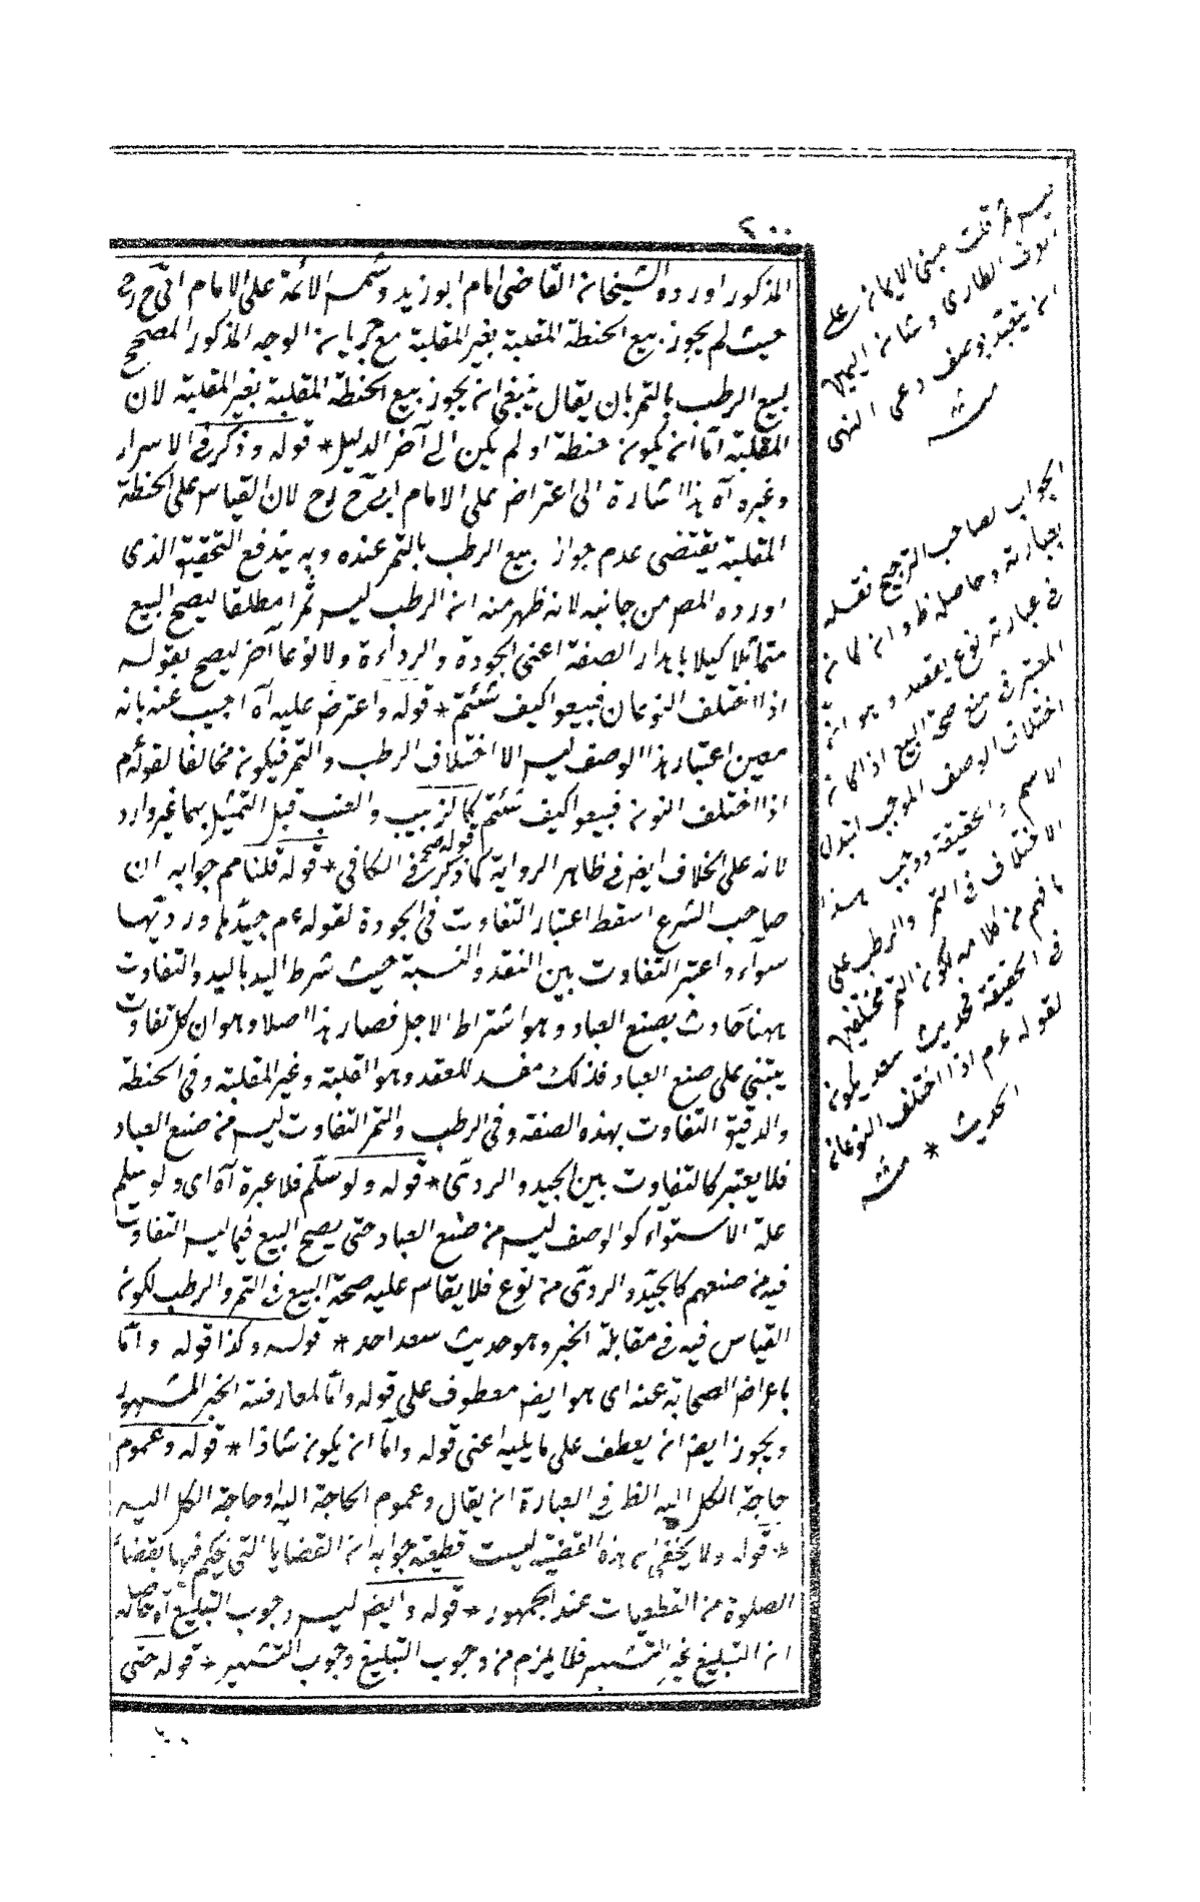 ٢٠٠
المذكور اورده الشيخان القاضى امام ابو زيد وشمس الائمة على الامام ابى ح رح
حيث لم يجوز بيع الحنطة المقلية بغير المقلية مع جريان الوجه المذكور المصحح
لبيع الرطب بالتمر بان يقال ينبغى ان يجوز بيع الحنطة المقلية بغير المقلية لان
المقلية اما ان يكون حنطة او لم يكن الى آخر الدليل * قوله وذكر فى الاسرار
وغيره آه هذا اشارة الى اعتراض على الامام ابى ح رح لان القياس على الحنطة
المقلية يقتضى عدم جواز بيع الرطب بالتمر عنده وبه يندفع التحقيق الذى
اورده المص من جانبه لانه ظهر منه ان الرطب ليس تمرا مطلقا ليصح البيع
متماثلا كيلا باهدار الصفة اعنى الجودة والرداءة ولا نوعا آخر ليصح بقوله
اذا اختلف النوعان فبيعوا كيف شئتم * قوله واعترض عليه آه اجيب عنه بانه
معين اعتبار هذا الوصف ليس الا اختلاف الرطب والتمر فيكون مخالفا لقوله م
اذا اختلف النوعان فبيعوا كيف شئتم كالزبيب والعنب قيل التمثيل بهما غير وارد
لانه على الخلاف ايض فى ظاهر الرواية كما ذكر فى الكافى * قوله قلنا مم جوابه ان
قوله صح
صاحب الشرع اسقط اعتبار التفاوت فى الجودة لقوله ءم جيدها ورديها
سواء واعتبر التفاوت بين النقد والنسية حيث شرط اليد باليد والتفاوت
ههنا حادث بصنع العباد وهو اشتراط الاجل فصار هذا اصلا وهو ان كل تفاوت
يبتنى على صنع العباد فذلك مفسد للعقد وهو القلية وغير المقلية وفى الحنطة
والدقيق التفاوت بهذه الصفة وفى الرطب والتمر التفاوت ليس من صنع العباد
فلا يعتبر كالتفاوت بين الجيد والردى * قوله ولو سلم فلا عبرة آه اى ولو سلم
علة الاستواء كو الوصف ليس من صنع العباد حتى يصح البيع فيما ليس التفاوت
فيه من صنعهم كالجيد والردى من نوع فلا يقاس عليه صحة البيع فى التمر والرطب لكون
القياس فيه فى مقابلة الخبر وهو حديث سعد احد * قوله وكذا قوله واما
باعراض الصحابة عنه اى هو ايض معطوف على قوله واما لمعارضته الخبر المشهور
ويجوز ايض ان يعطف على ما يليه اعنى قوله واما ان يكون شاذا * قوله وعموم
حاجة الكل اليه الظ فى العبارة ان يقال وعموم الحاجة اليه او حاجة الكل اليه
* قوله ولا يخفى ان هذه القضية ليست قطعية جوابه ان القضايا التى يحكم فيها بقضاء
الصلوة من القطعيات عند الجمهور * قوله وايض ليس وجوب التبليغ آه حاصله
ان التبليغ غير التشهير فلا يلزم من وجوب التبليغ وجوب التشهير * قوله حتى
قلت مبنى الايمان على
الطارى وشان اليمين
ان يتقيد بوصف دعى اليهى
منه
الجواب لصاحب الترجيح نقله
بعبارته وحاصله ظ وان كان
فى عبارته نوع تعقيد وهو ان
المعتبر فى صحة البيع اذا كان
اختلاف الوصف الموجب لتبدل
الاسم والحقيقة ووجب هذا
الاختلاف فى التمر والرطب على
ما فهم من كلامه لكون التمر مختلفين
فى الحقيقة فحديث سعد يكون
لقوله ءم اذا اختلف النوعان
الحديث * منه